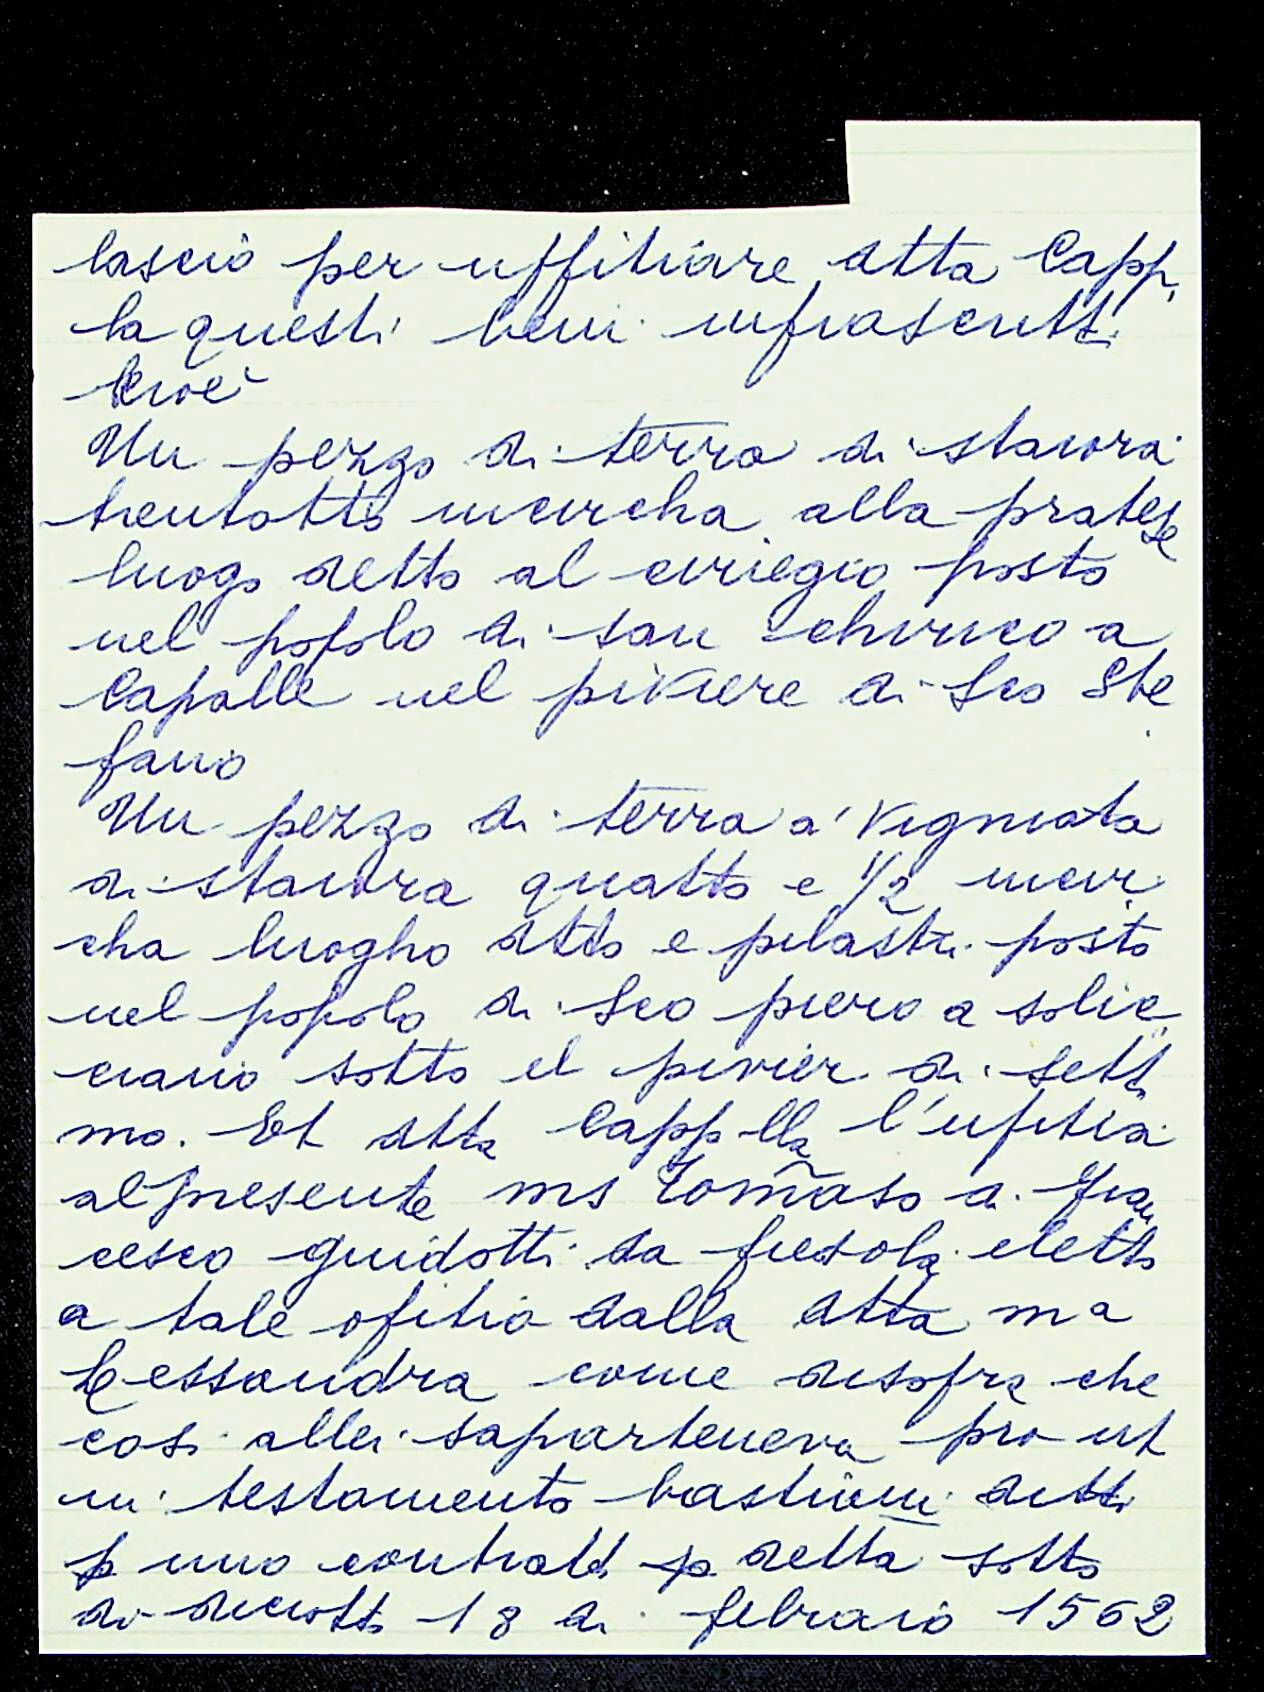 lascio per uffitiare dtta Capp.
la questi beni infrascritti
cioè
Un pezzo di terra di staiora
trentotto incircha alla pratese
luogo detto al ciriegio posto
nel popolo di san chirico a
Capalle nel piviere di Sco Ste
fano
Un pezzo di terra a' vigniata
di staiora quatto e 1/2 incir
cha luogho dtto e pilastri posto
nel popolo di Sco piero a solic
ciano sotto il pivier di Setti
mo. Et dtta Cappella l'ufitia
al presente ms Tomaso di Fran
cesco guidotti da fiesole eletto
a tale ofitio dalla dtta ma
Lessandra come disopra che
cosi allei sapparteneva pro ut
in testamento bastiani detti
p uno contratto p detta sotto
di diciotto 18 di febraio 1562